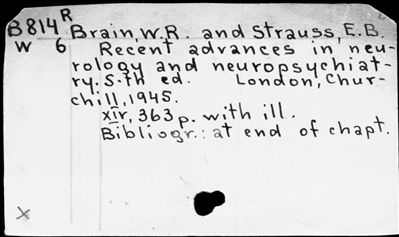 B814R Brain, W.R. and Strauss, E.B.
W 6 Recent advances in neu-
rology and neuropsychiat-
ry. 5.th ed. London, Chur-
chill, 1945.
xiv, 363 p. with ill.
Bibliogr.: at end of chapt.
X